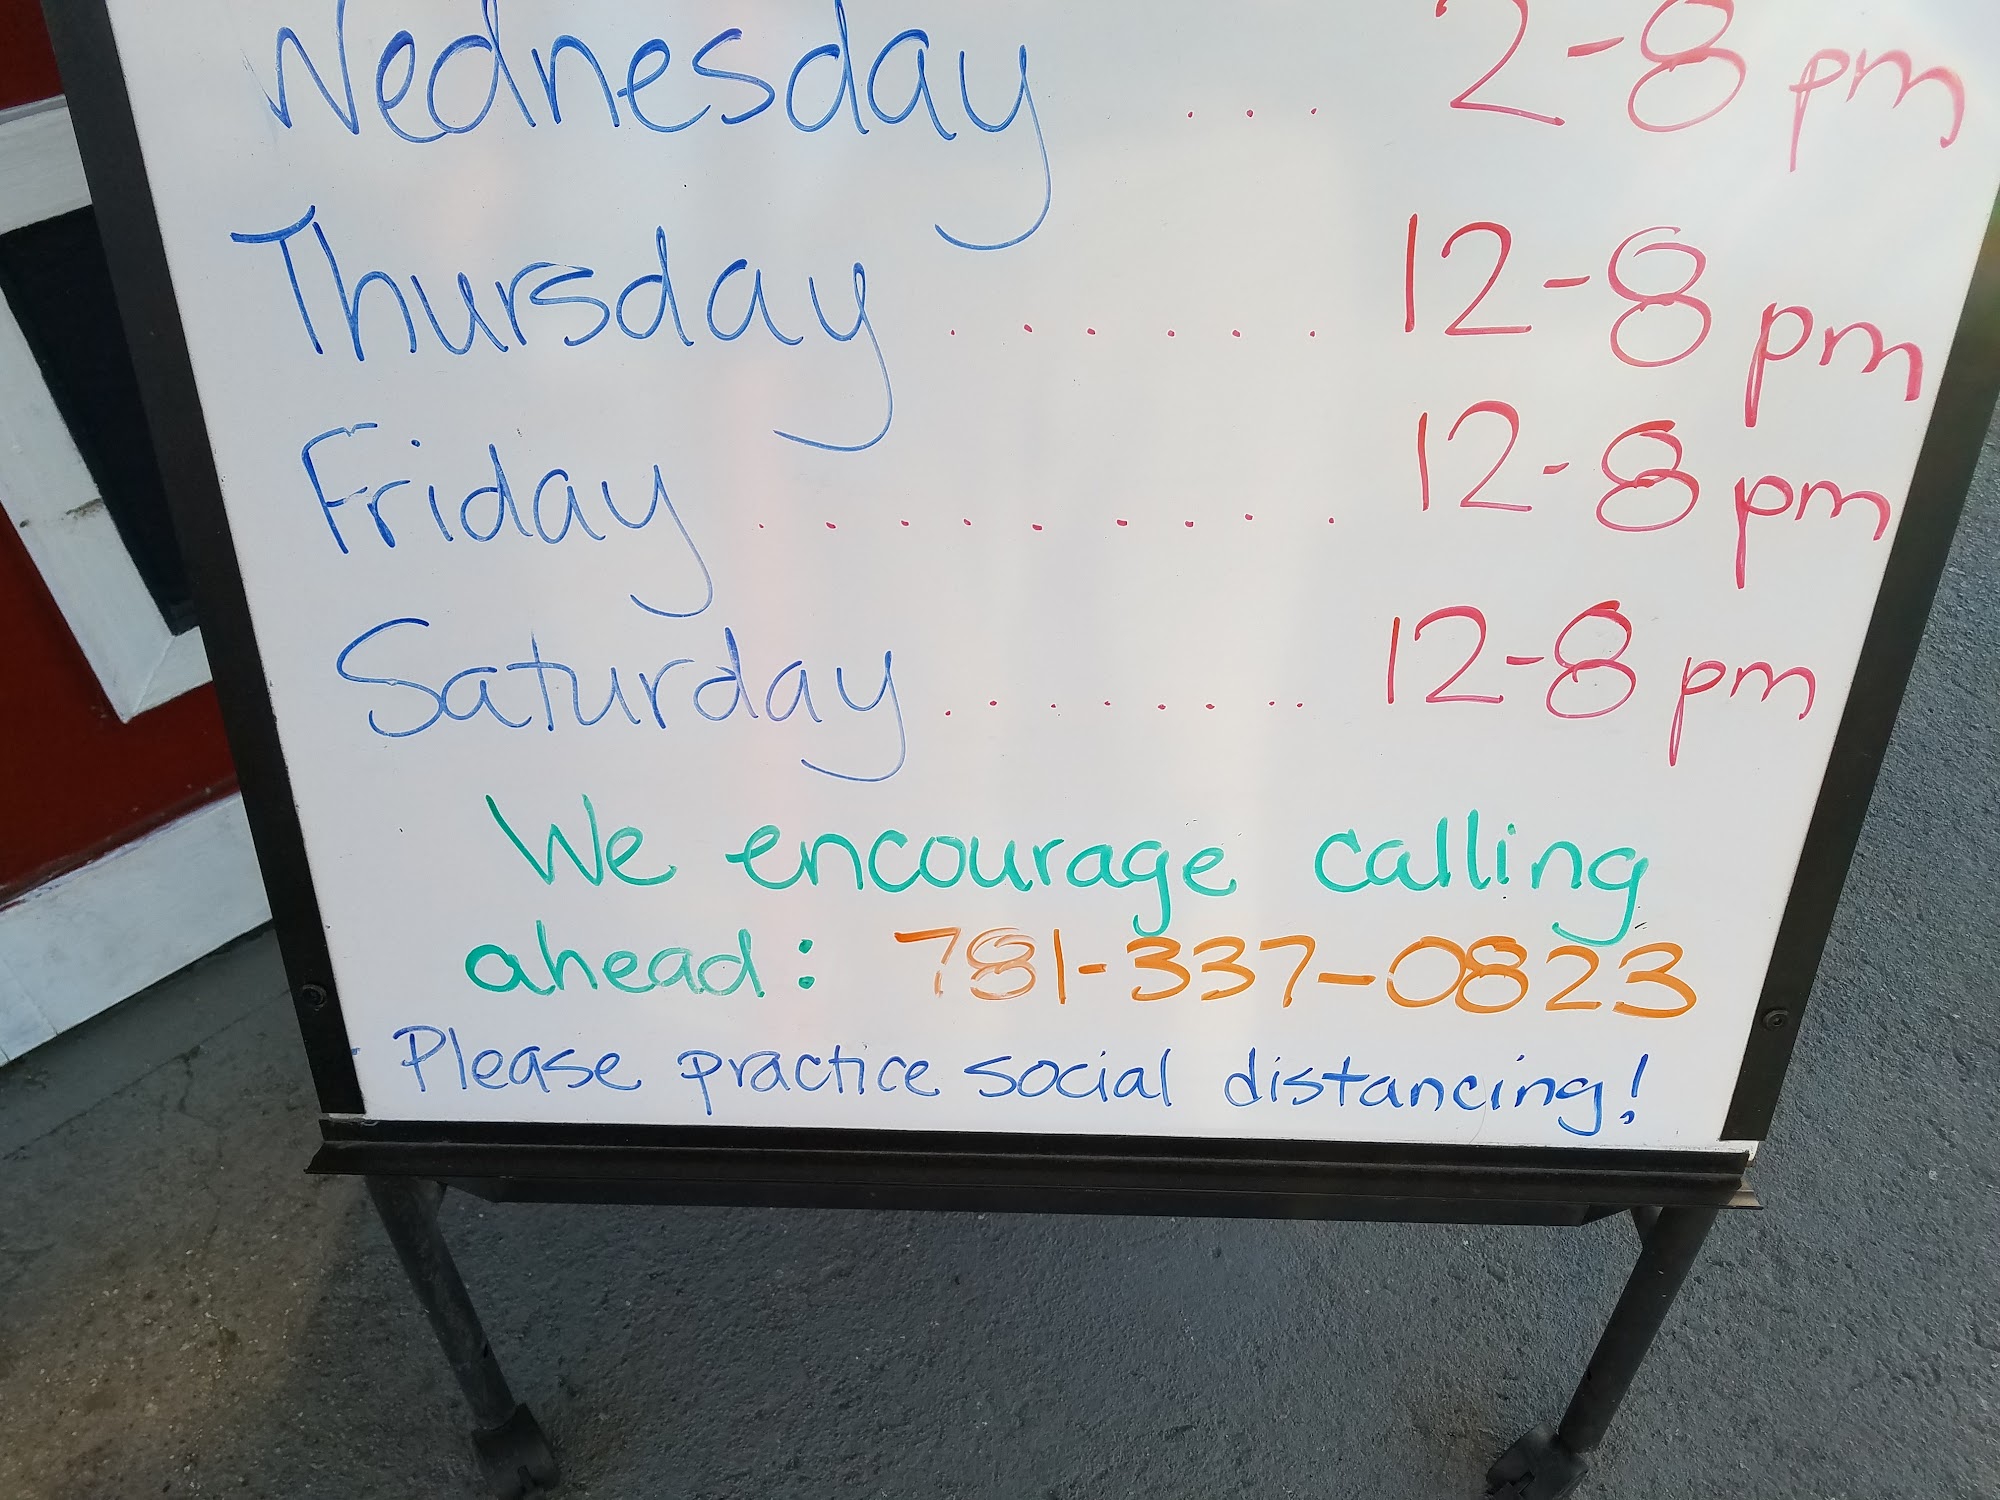 Wednesday ... 2-8 pm
Thursday ...... 12-8 pm
Friday ......... 12-8 pm
Saturday ........ 12-8 pm
We encourage calling
ahead: 781-337-0823
Please practice social distancing!